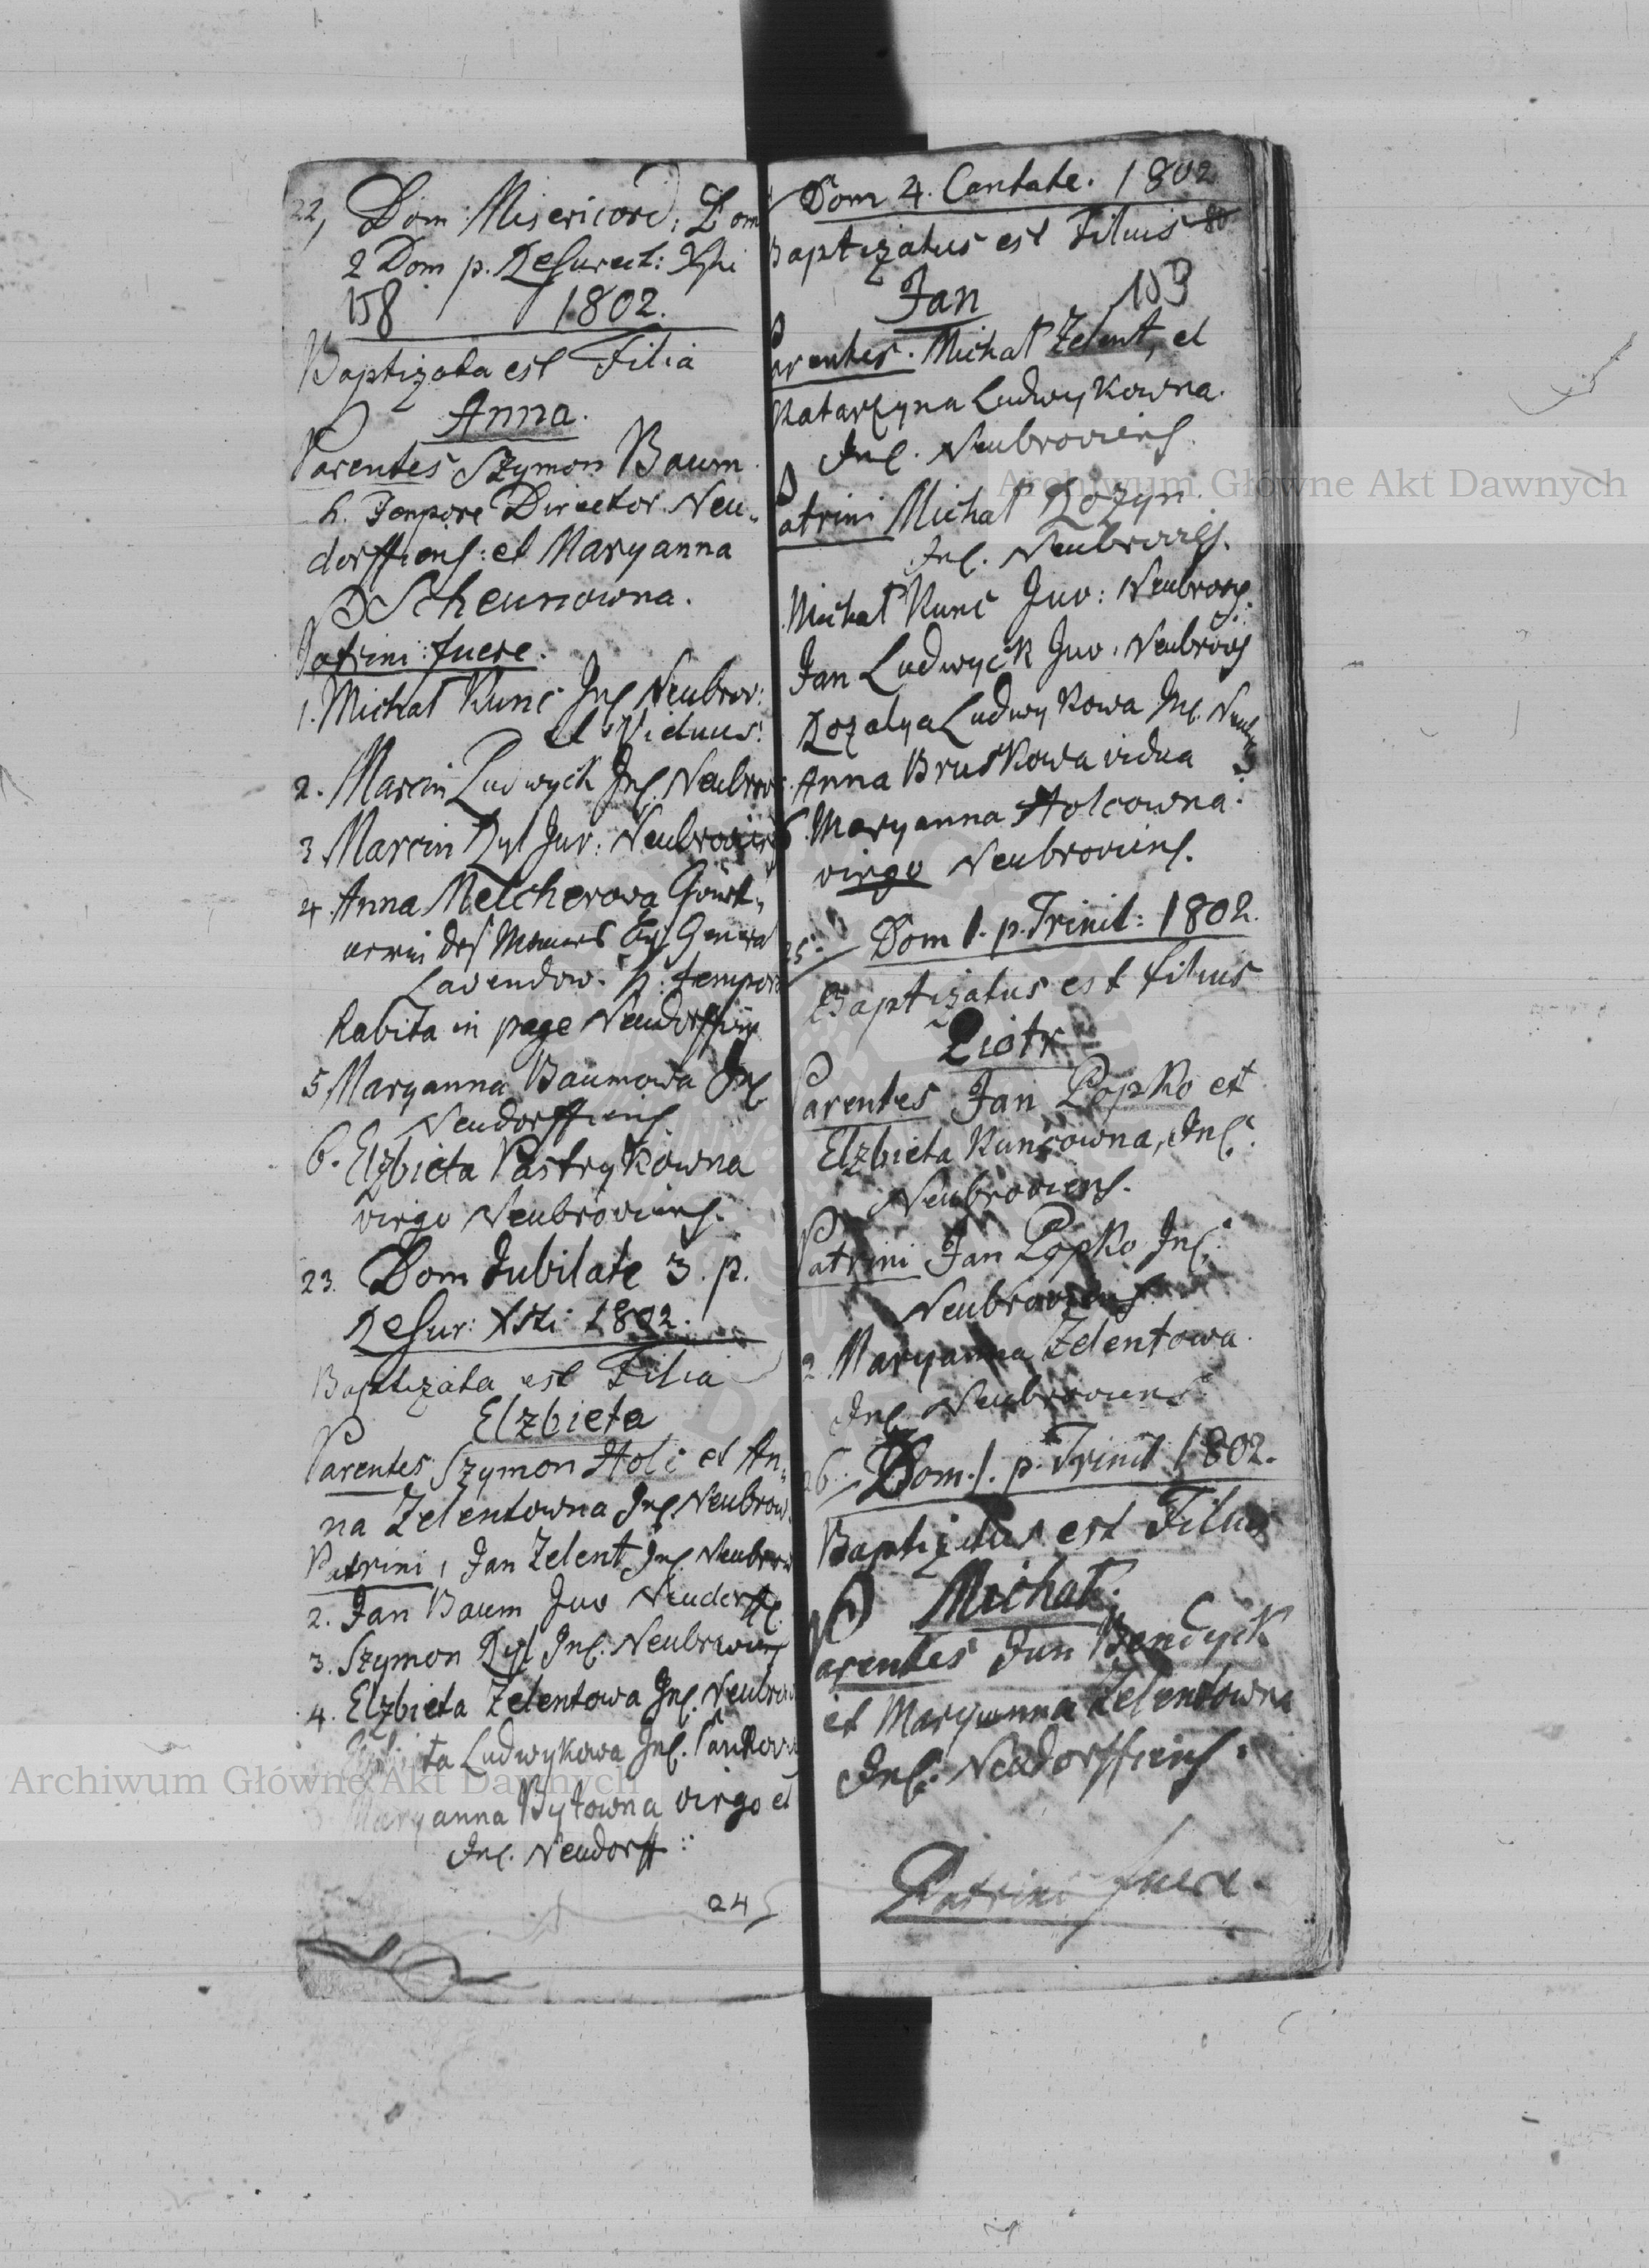 22, Dom: Misericord: Dom
2 Dom p. Resurect: Xsti
158 1802.
Baptizata est Filia
Anna.
Parentes Szymon Baum
h. Tempore Director Neu„
dorffiens: et Maryanna
Scheunowna.
Patrini: fuere.
1. Michał Kunc Inc Neubrov:
et Viduus:
2. Marcin Ludwyck Inc. Neubrov
3 Marcin Ryl Juv: Neubroviens
4 Anna Melcherowa
h: tempore
habita in page Neudorffiens
5 Maryanna Baumowa Inc
Neudorffiens.
6. Elzbieta Pastrykowna
virgo Neubroviens.
23. Dom Jubilate 3. p.
Resur: Xsti 1802.
Baptizata est Filia
Elzbieta
Parentes Szymon Holc et An„
na Zelentowna Inc. Neubrow
Patrini 1 Jan Zelent Inc. Neubrow
2. Jan Baum Juv Neudorff.
3. Szymon Ryl Inc: Neubrwiens
4. Elzbieta Zelentowa Inc. Neubrow
Ludwykowa Inc.
Maryanna Bytowna virgo et
Inc. Neudorff:
24
Dom 4. Cantate. 1802
Baptizatus est Filius 80
Jan 153
Parentes. Michał Zelent, et
Katarzyna Ludwykowna.
Inc. Neubroviens
Patrini Michał Rozyn
Inc. Neubrovies.
Michał Kunc Juv: Neubrovs.
Jan Ludwyck Juv. Neubrovs
Rozalya Ludwykowa Inc. Neub
Anna Bruskowa vidua
Maryanna Holcowna.
virgo Neubroviens.
25. Dom 1. p. Trinit: 1802.
Baptizatus est filius
Piotr
Parentes Jan Popko et
Elzbieta Kuncowna, Inc.
Neubroviens.
Patrini Jan Popko Inc.
Neubroviens
2. Maryanna Zelentowa
Inc Neubroviens
26. Dom. 1. p. Trinit 1802.
Baptizatus est Filius
Michał.
Parentes Jan Bendyck
et Maryanna Zelentowna
Inc. Neudorffiens.
Patrini fuere.
Archiwum Główne Akt Dawnych
Archiwum Główne Akt Dawnych